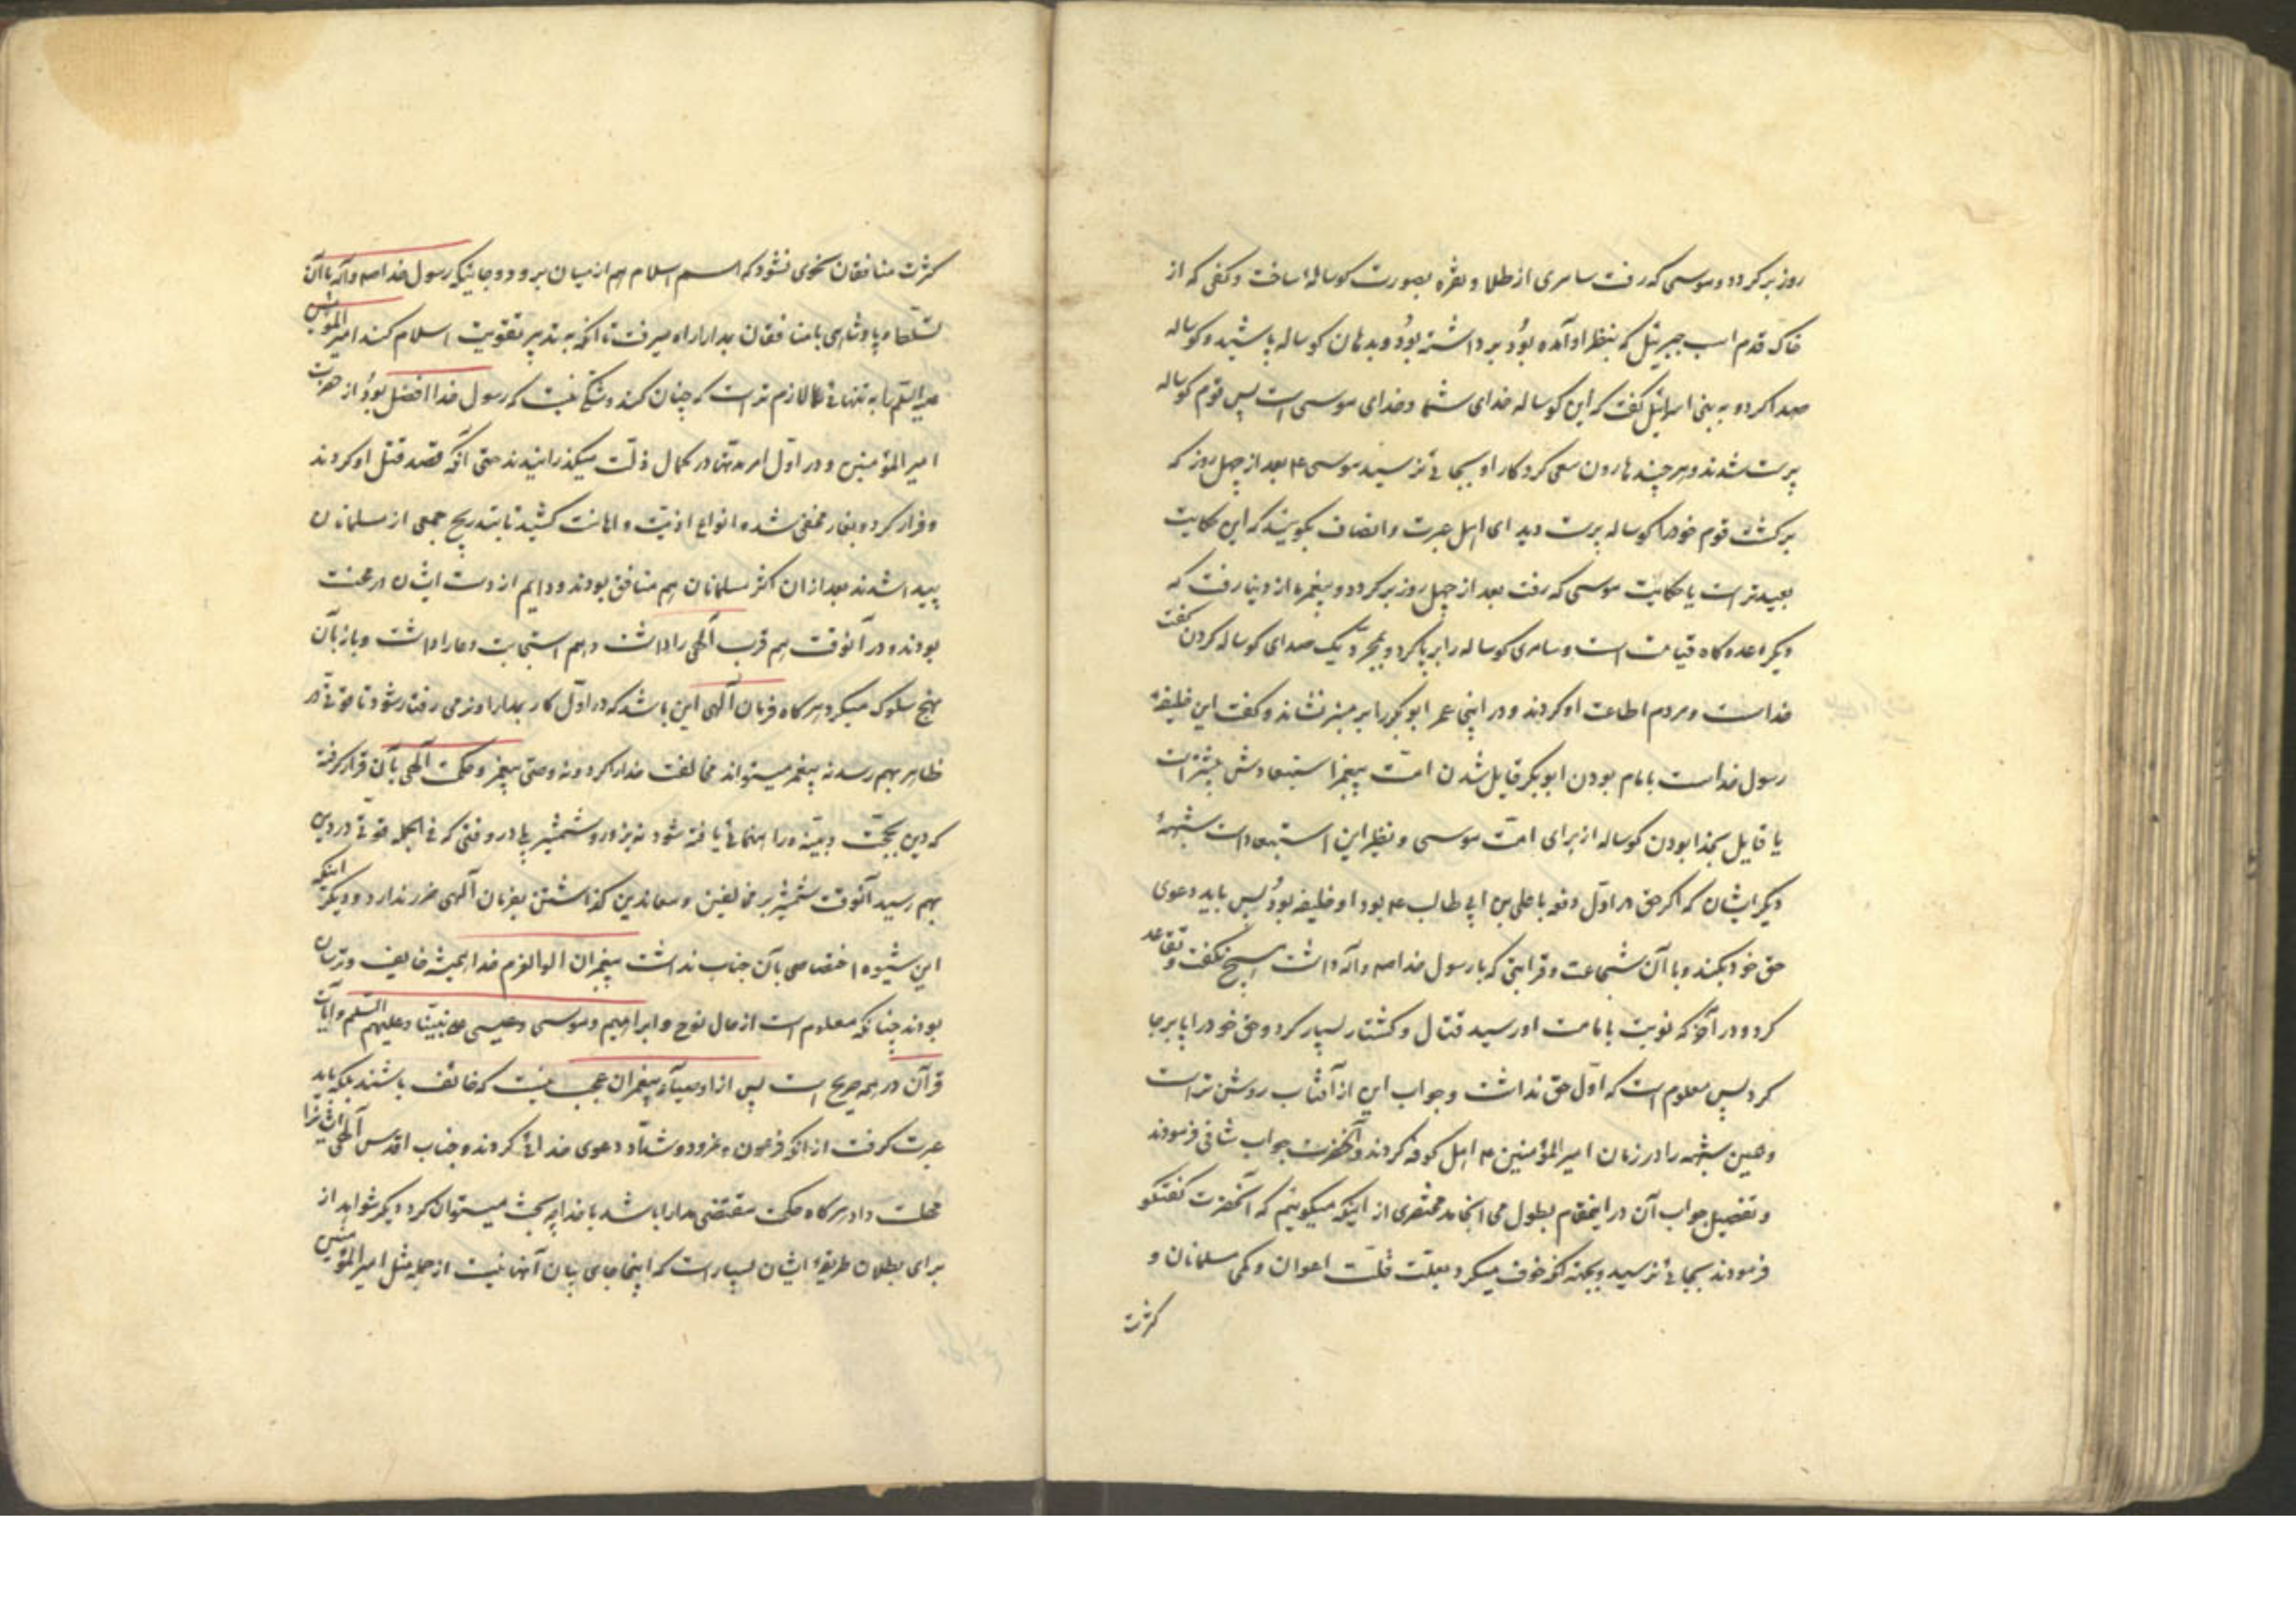 روز برکردد و موسی که رفت سامری از طلا و نقره بصورت کوسالهٔ ساخت و کفی که از
خاک قدم اسب جبرئیل که بنظر او آمده بود برداشته بود و بدهان کوساله پاشید و کوساله
صدا کرد و به بنی اسرائیل کفت که این کوساله خدای شما و خدای موسی است پس قوم کوساله
پرست شدند و هر چند هارون سعی کرد کار او بجائی نرسید موسی ع بعد از چهل روز که
برکشت قوم خود را کوساله پرست دید ای اهل عبرت و انصاف بکویند که این حکایت
بعیدتر است یا حکایت موسی که رفت بعد از چهل روز برکردد و پیغمبر ما از دنیا رفت که
دیکر وعده کاه قیامت است و سامری کوساله را برپا کرد و بمجرد یک صدای کوساله کردن کفت
خداست و مردم اطاعت او کردند و در اینجا عمر ابو بکر را بر منبر نشاند و کفت این خلیفهٔ
رسول خداست بامام بودن ابو بکر قایل شدن امت پیغمبر استبعادش بیشتر است
یا قایل بخدا بودن کوساله از برای امت موسی و نظیر این استبعاد است شبههٔ
دیکر ایشان که اکر حق در اول دفعه با علی بن ابی طالب ع بود و او خلیفه بود پس باید دعوی
حق خود بکند و با آن شجاعت و قرابتی که با رسول خدا صم وآله داشت هیچ نکفت و تقاعد
کرد و در آخر که نوبت بامامت او رسید قتال و کشتار بسیار کرد و حق خود را پا برجا
کرد پس معلوم است که اول حق نداشت و جواب این از آفتاب روشن تر است
و همین شبهه را در زمان امیر المؤمنین ع اهل کوفه کردند و آنحضرت جواب شافی فرمودند
و تفصیل جواب آن در اینمقام بطول می انجامد مختصری از اینکه میکوئیم که آنحضرت کفتکو
فرمودند بجائی نرسید و بجهة آنکه خوف میکرد بعلت قلت اعوان و کمی مسلمانان و
کثرت
کثرت منافقان نحوی نشود که اسم اسلام هم از میان برود و جائیکه رسول خدا صم وآله با آن
تسلط و پادشاهی با منافقان بمدارا راه میرفت تا آنکه به تدبیر تقویت اسلام کند امیر المؤمنین
علیه السلم را به تنهائی لازم تر است که چنان کند و شکی نیست که رسول خدا افضل بود از حضرت
امیر المؤمنین و در اول امر مدتها در کمال ذلت میکذرانیدند حتی آنکه قصد قتل او کردند
و فرار کرد و بغار مخفی شد و انواع اذیت و اهانت کشید تا بتدریج جمعی از مسلمانان
پیدا شدند بعد از ان اکثر مسلمانان هم منافق بودند و دایم از دست ایشان در محنت
بودند و در آنوقت هم قرب آلهی را داشت و هم استجابت دعا را داشت و باز بآن
نهج سلوک میکرد هر کاه فرمان آلهی این باشد که در اول کار بمدارا و نرمی رفتار شود تا قوتی در
ظاهر بهم رسد نه پیغمبر میتواند مخالفت خدا کرد و نه وصی پیغمبر و حکمت آلهی بآن قرار کرفته
که دین بحجت و بینه و راهنمائی یافته شود نه بزور و شمشیر بلی در وقتی که فی الجمله قوتی در دین
بهم رسید آنوقت شمشیر بر مخالفین و معاندین کذاشتن بفرمان آلهی ضرر ندارد و دیکر اینکه
این شیوه اختصاصی بآن جناب نداشت پیغمبران الوالعزم خدا همیشه خایف و ترسان
بودند چنانکه معلوم است از حال نوح و ابراهیم و موسی و عیسی علی نبینا و علیهم السلم و آیات
قرآن در همه صریح است پس از اوصیآء پیغمبران عجب نیست که خائف باشند بلکه باید
عبرت کرفت از آنکه فرعون و نمرود و شداد دعوی خدائی کردند و جناب اقدس آلهی ایشانرا
مهلت داد هر کاه حکمت مقتضی مدارا باشد با خدا چه بحث میتوان کرد دیکر شواهد از
برای بطلان طریقهٔ ایشان بسیار است که اینجا جای بیان آنها نیست از جمله مثل امیر المؤمنین